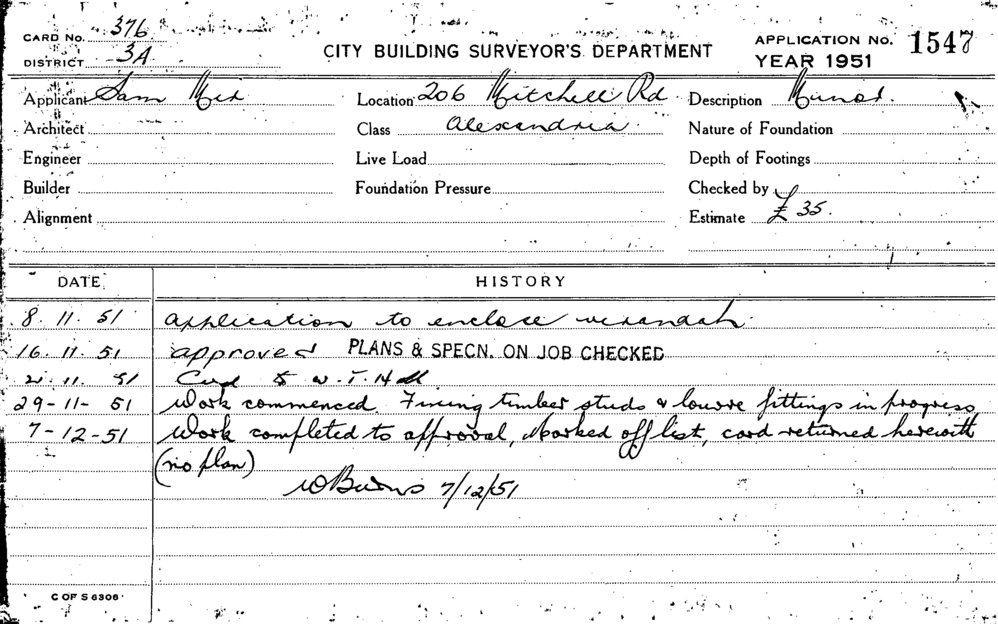 CARD No. 376
DISTRICT 3A
CITY BUILDING SURVEYOR'S DEPARTMENT
APPLICATION No. 1547
YEAR 1951
Applicant Sam
Location 206 Mitchell Rd
Description Minor.
Architect
Class Alexandria.
Nature of Foundation
Engineer
Live Load
Depth of Footings
Builder
Foundation Pressure
Checked by
Alignment
Estimate £ 35.
DATE
HISTORY
8. 11. 51 application to enclose verandah.
16. 11. 51 approved PLANS & SPECN. ON JOB CHECKED
2 . 11. 51 Card to W. T. Hall
29-11-51 Work commenced. Fixing timber studs & louvre fittings in progress
7-12-51 Work completed to approval, Marked off list, card returned herewith
(no plan)
WBurns 7/12/51
C OF S 6306